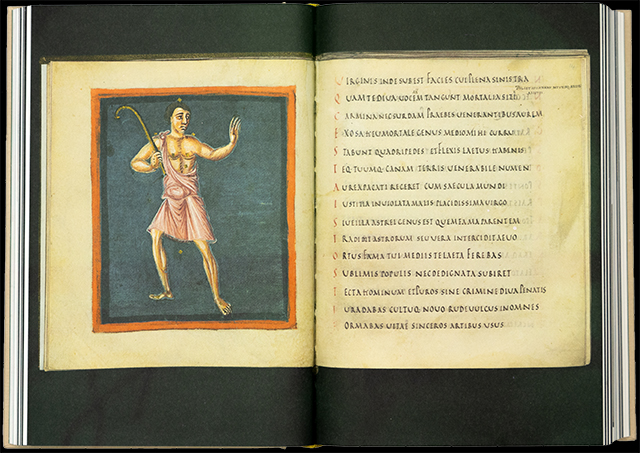 VIRGINIS INDE SUBEST FACIES CUI PLENA SINISTRA
QUAM TE DIUA UOCEM TANGUNT MORTALIA SI TE
CARMINA NEC SURDAM PRAEBES UENERANTIBUS AUREM
EXOSA HEU MORTALE GENUS MEDIO MIHI CURRU
STABUNT QUADRIPEDES ET FLEXIS LAETUS HABENIS
TEQUE TUUMQ CANAM TERRIS UENERABILE NUMEN
AUREA PACATI REGERET CUM SAECULA MUNDI
IUSTITIA INUIOLATA MALIS PLACIDISSIMA UIRGO
SIUE ILLA ASTREI GENUS EST QUEM FAMA PARENTEM
TRADIDIT ASTRORUM SEU UERA INTERCIDIT AEUO
ORTUS FAMA TUI MEDIIS TE LAETA FEREBAS
SUBLIMIS POPULIS NEC DEDIGNATA SUBIRE
TECTA HOMINUM ET PUROS SINE CRIMINE DIUA PENATIS
IURA DABAS CULTUQ NOUO RUDE UULCUS IN OMNES
FORMABAS UITAE SINCEROS ARTIBUS USUS